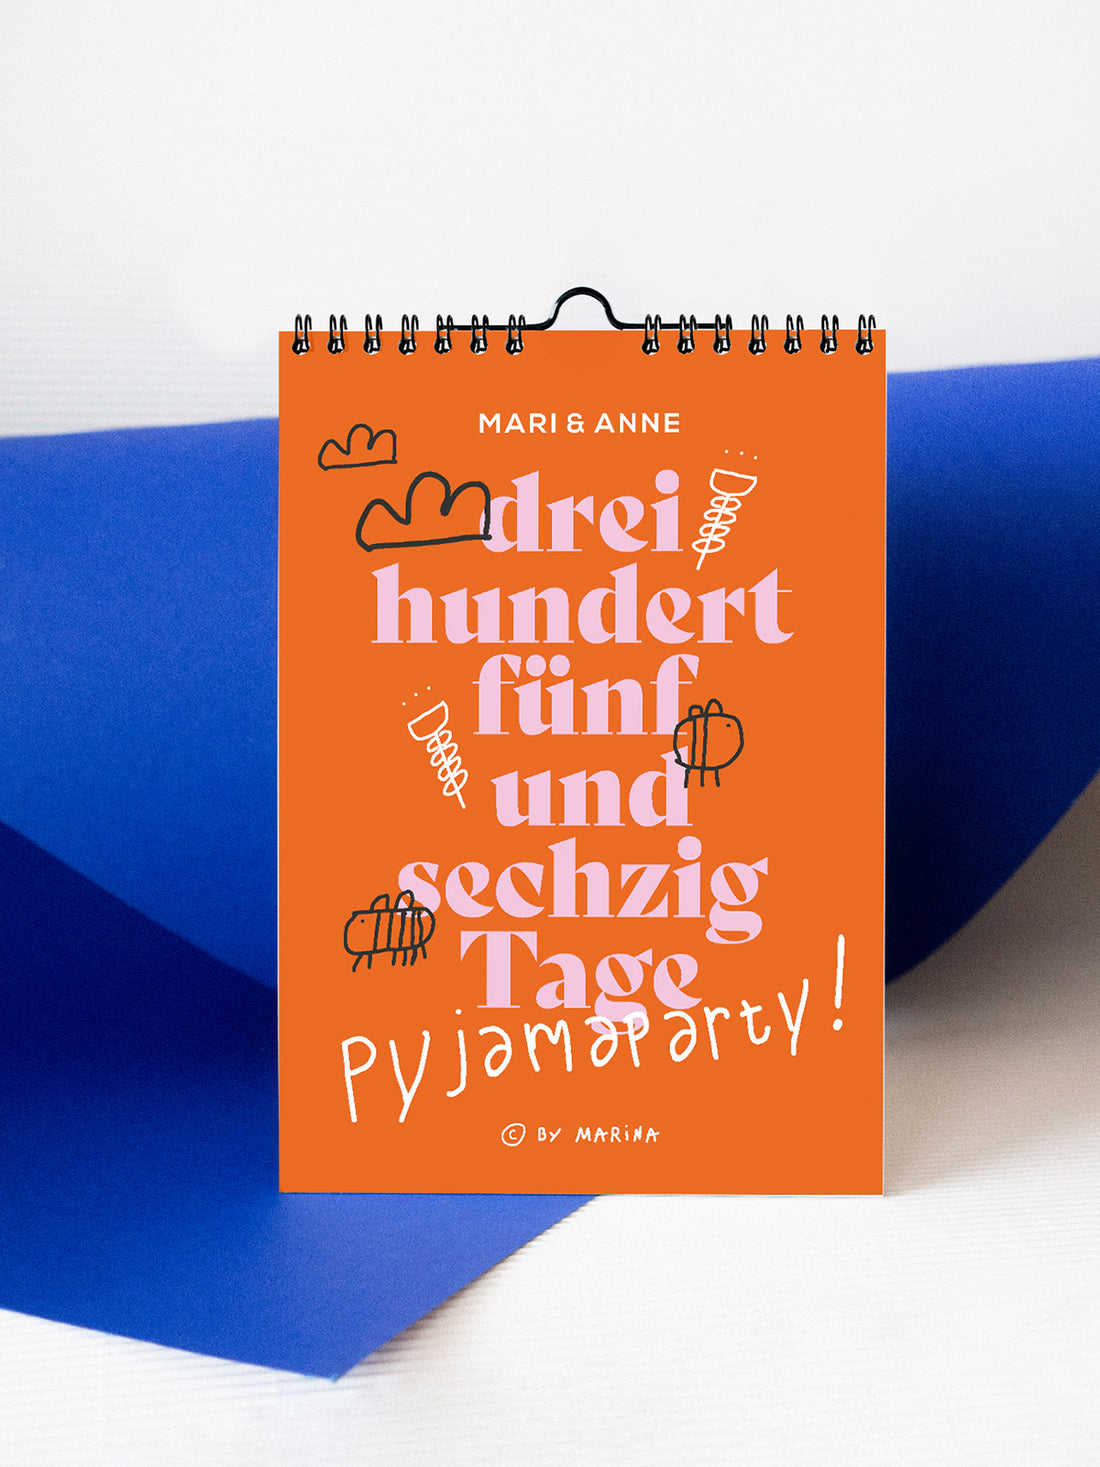 MARI & ANNE
drei
hundert
fünf
und
sechzig
Tage
pyjamaparty!
© BY MARiNA